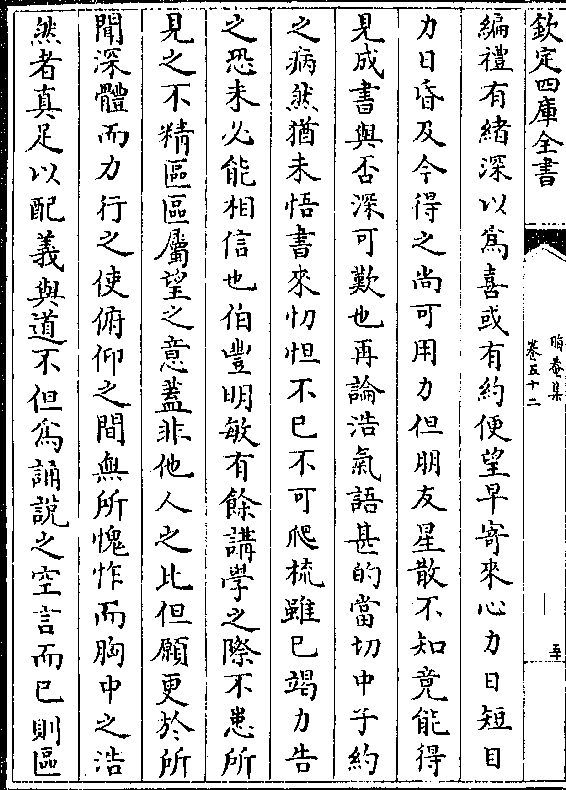 欽定四庫全書
晦菴集
卷五十二
五十
編禮有緒深以爲喜或有約便望早寄來心力日短目
力日昏及今得之尚可用力但朋友星散不知竟能得
見成書與否深可歎也再論浩氣語甚的當切中子約
之病然猶未悟書來忉怛不已不可爬梳雖已竭力告
之恐未必能相信也伯豐明敏有餘講學之際不患所
見之不精區區屬望之意蓋非他人之比但願更於所
聞深體而力行之使俯仰之間無所愧怍而胸中之浩
然者真足以配義與道不但爲誦說之空言而已則區